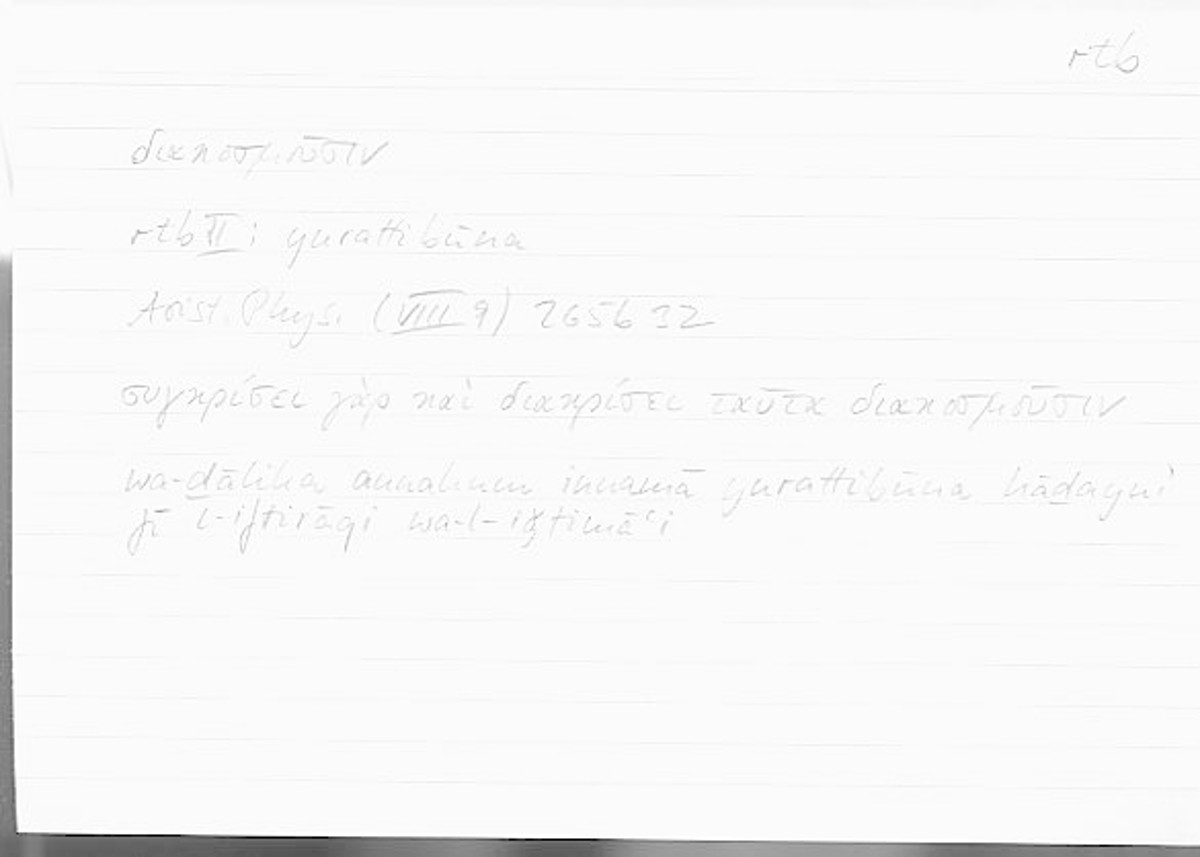 rtb
διακοσμοῦσιν
rtb II: yurattibūna
Arist. Phys. (VIII 9) 265b 32
συγκρίσει γὰρ καὶ διακρίσει ταῦτα διακοσμοῦσιν
wa-ḏālika annahum innamā yurattibūna hāḏayni
fī l-iftirāqi wa-l-iǧtimāʿi